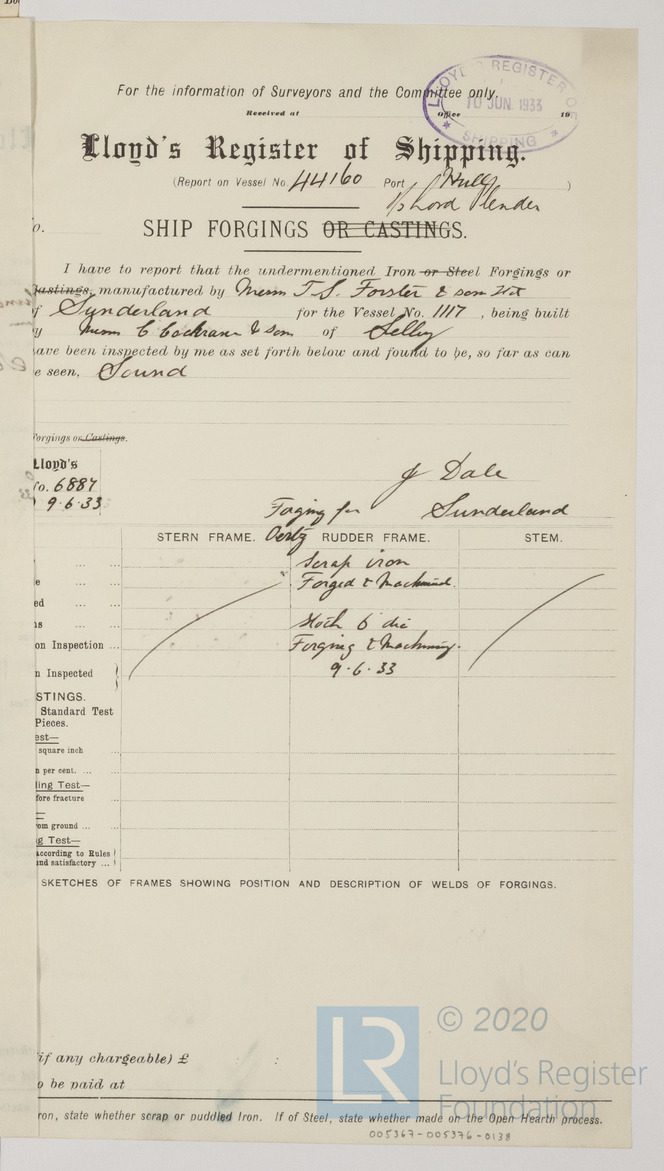 For the information of Surveyors and the Committee only.
LLOYD'S REGISTER OF
10 JUN. 1933
* SHIPPING *
Received at Office 19
Lloyd's Register of Shipping.
(Report on Vessel No. 44160 Port Hull)
S/S Lord Plender
o.
SHIP FORGINGS OR CASTINGS.
I have to report that the undermentioned Iron or Steel Forgings or
Castings, manufactured by Messrs T.S. Forster & son Ltd
of Sunderland for the Vessel No. 1117, being built
y Messrs C Cochrane & Son of Selby
ave been inspected by me as set forth below and found to be, so far as can
e seen, Sound
Forgings or Castings.
Lloyd's
No. 6887
9.6.33
J Dale
Forging for Sunderland
STERN FRAME. Oertz RUDDER FRAME. STEM.
... ... Scrap iron
e ... ... Forged & Machined.
ed ... ...
ns ... ... Stock 6 dia
on Inspection ... Forging & Machining.
n Inspected } 9.6.33
STINGS.
Standard Test
Pieces.
est—
square inch ...
n per cent. ... ...
ling Test—
fore fracture ...
om ground ... ...
g Test—
according to Rules
and satisfactory ... }
SKETCHES OF FRAMES SHOWING POSITION AND DESCRIPTION OF WELDS OF FORGINGS.
if any chargeable) £ :
o be paid at
ron, state whether scrap or puddled Iron. If of Steel, state whether made on the Open Hearth process.
LR
© 2020
Lloyd's Register
Foundation
005367-005376-0138